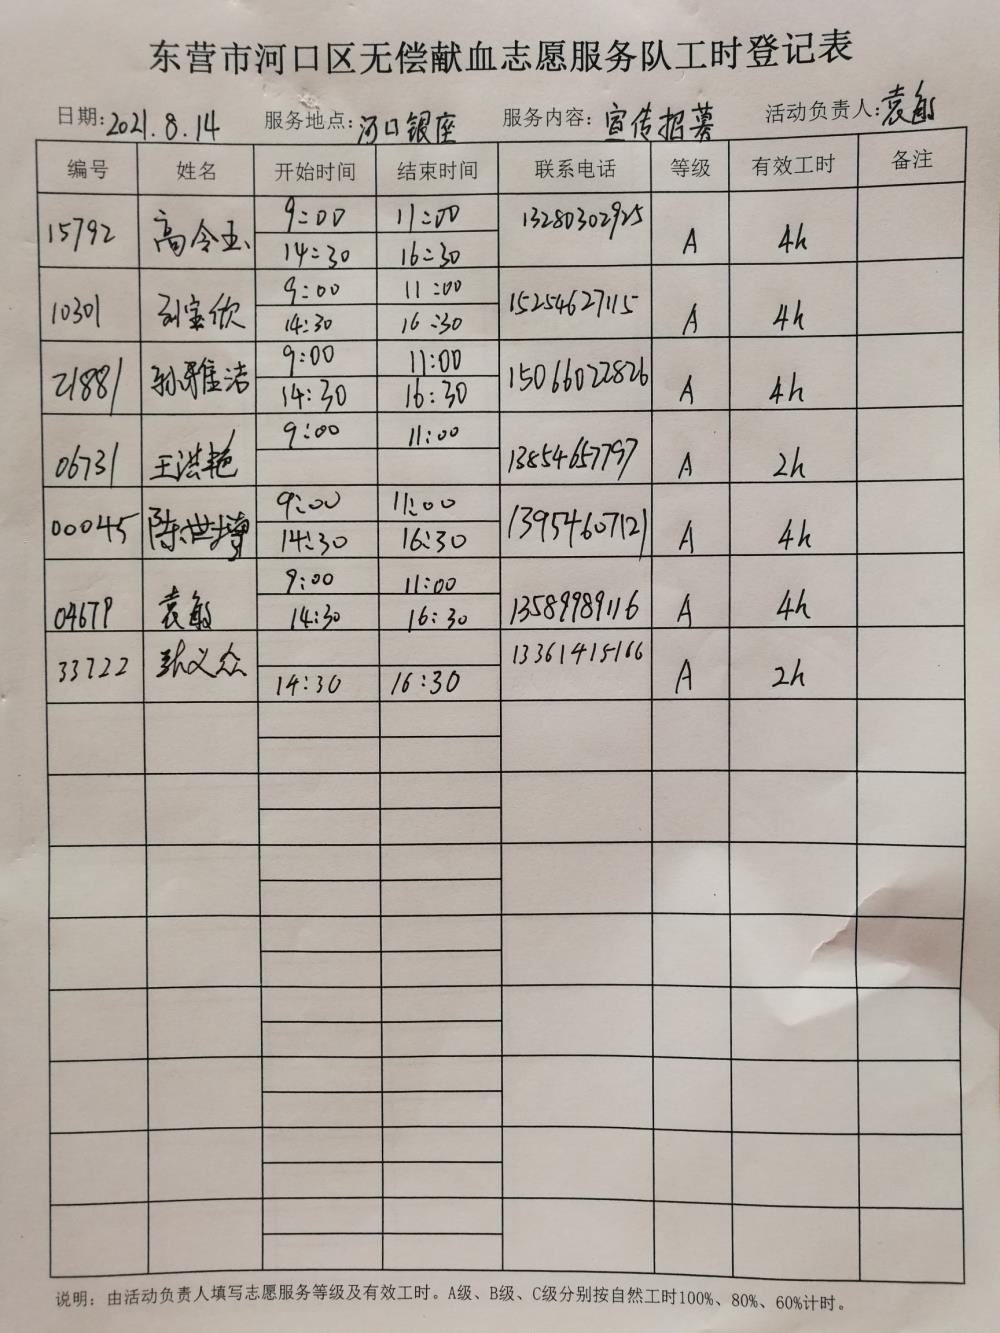 东营市河口区无偿献血志愿服务队工时登记表
日期:2021.8.14 服务地点:河口银座 服务内容:宣传招募 活动负责人:袁敏
编号 姓名 开始时间 结束时间 联系电话 等级 有效工时 备注
15792 高令玉 9:00 11:00 13280302925 A 4h
14:30 16:30
10301 刘宝欣 9:00 11:00 15254627115 A 4h
14:30 16:30
21881 孙雅洁 9:00 11:00 15066022826 A 4h
14:30 16:30
06731 王洪艳 9:00 11:00 13854657797 A 2h
00045 陈世增 9:00 11:00 13954607121 A 4h
14:30 16:30
04679 袁敏 9:00 11:00 13589989116 A 4h
14:30 16:30
33722 张义众 13361415166 A 2h
14:30 16:30
说明：由活动负责人填写志愿服务等级及有效工时。A级、B级、C级分别按自然工时100%、80%、60%计时。